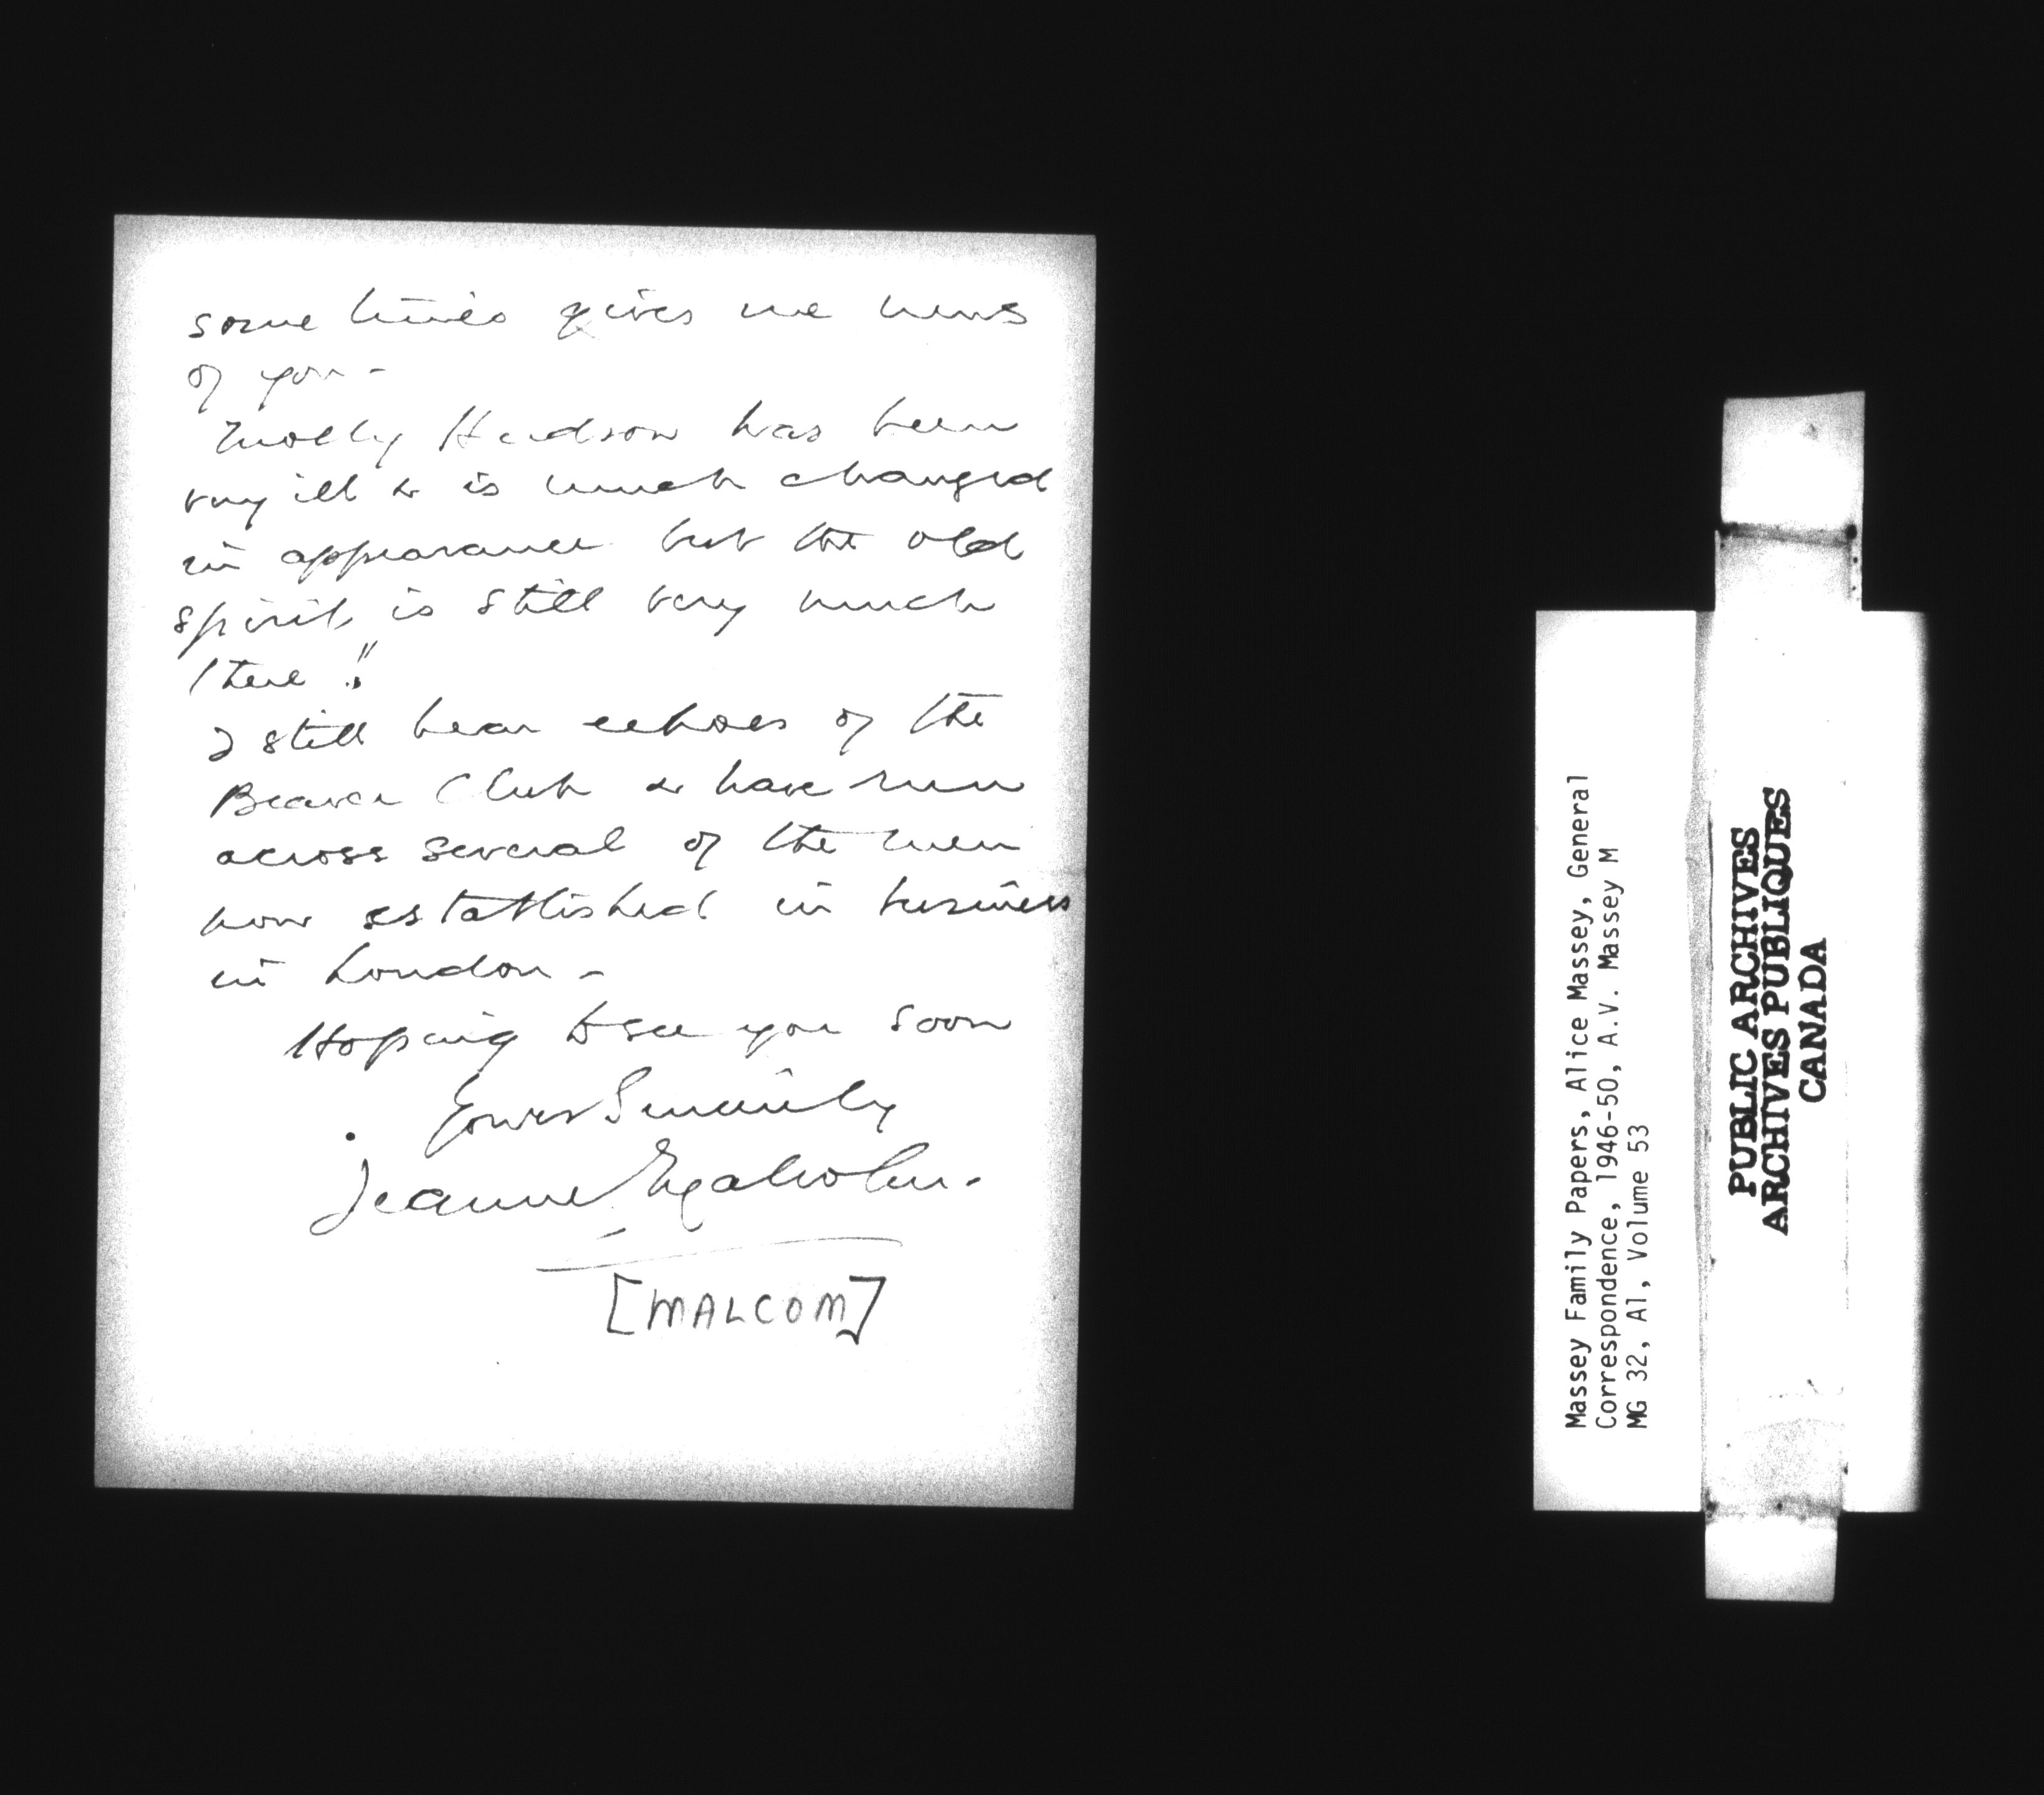 some times gives me news
of you -
Molly Hudson has been
very ill & is much changed
in appearance but the old
spirit is still very much
there !!
I still hear echoes of the
Beaver Club & have run
across several of the men
now established in business
in London -
Hoping to see you soon
Yours Sincerely
Jeanne Malcolm.
[MALCOM]
Massey Family Papers, Alice Massey, General
Correspondence, 1946-50, A.V. Massey M
MG 32, A1, Volume 53
PUBLIC ARCHIVES
ARCHIVES PUBLIQUES
CANADA